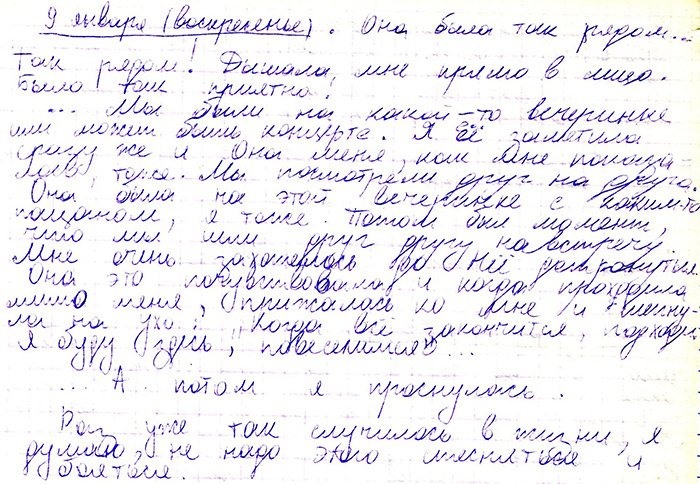 9 января (воскресенье). Она была так рядом...
Так рядом! Дышала мне прямо в лицо.
Было так приятно!
... Мы были на какой-то вечеринке
или может быть концерте. Я Её заметила
сразу же и Она меня, как мне показа-
лось, тоже. Мы посмотрели друг на друга.
Она была на этой вечеринке с каким-то
пацаном, я тоже. Потом был момент,
что мы шли друг другу навстречу.
Мне очень захотелось до Неё дотронуться.
Она это почувствовала и когда проходила
мимо меня, прижалась ко мне и шепну-
ла на ухо: "Когда всё закончится, подходи
Я буду здесь, повеселимся"...
... А потом я проснулась.
Раз уже так случилось в жизни, я
думаю, не надо этого стесняться и
бояться.